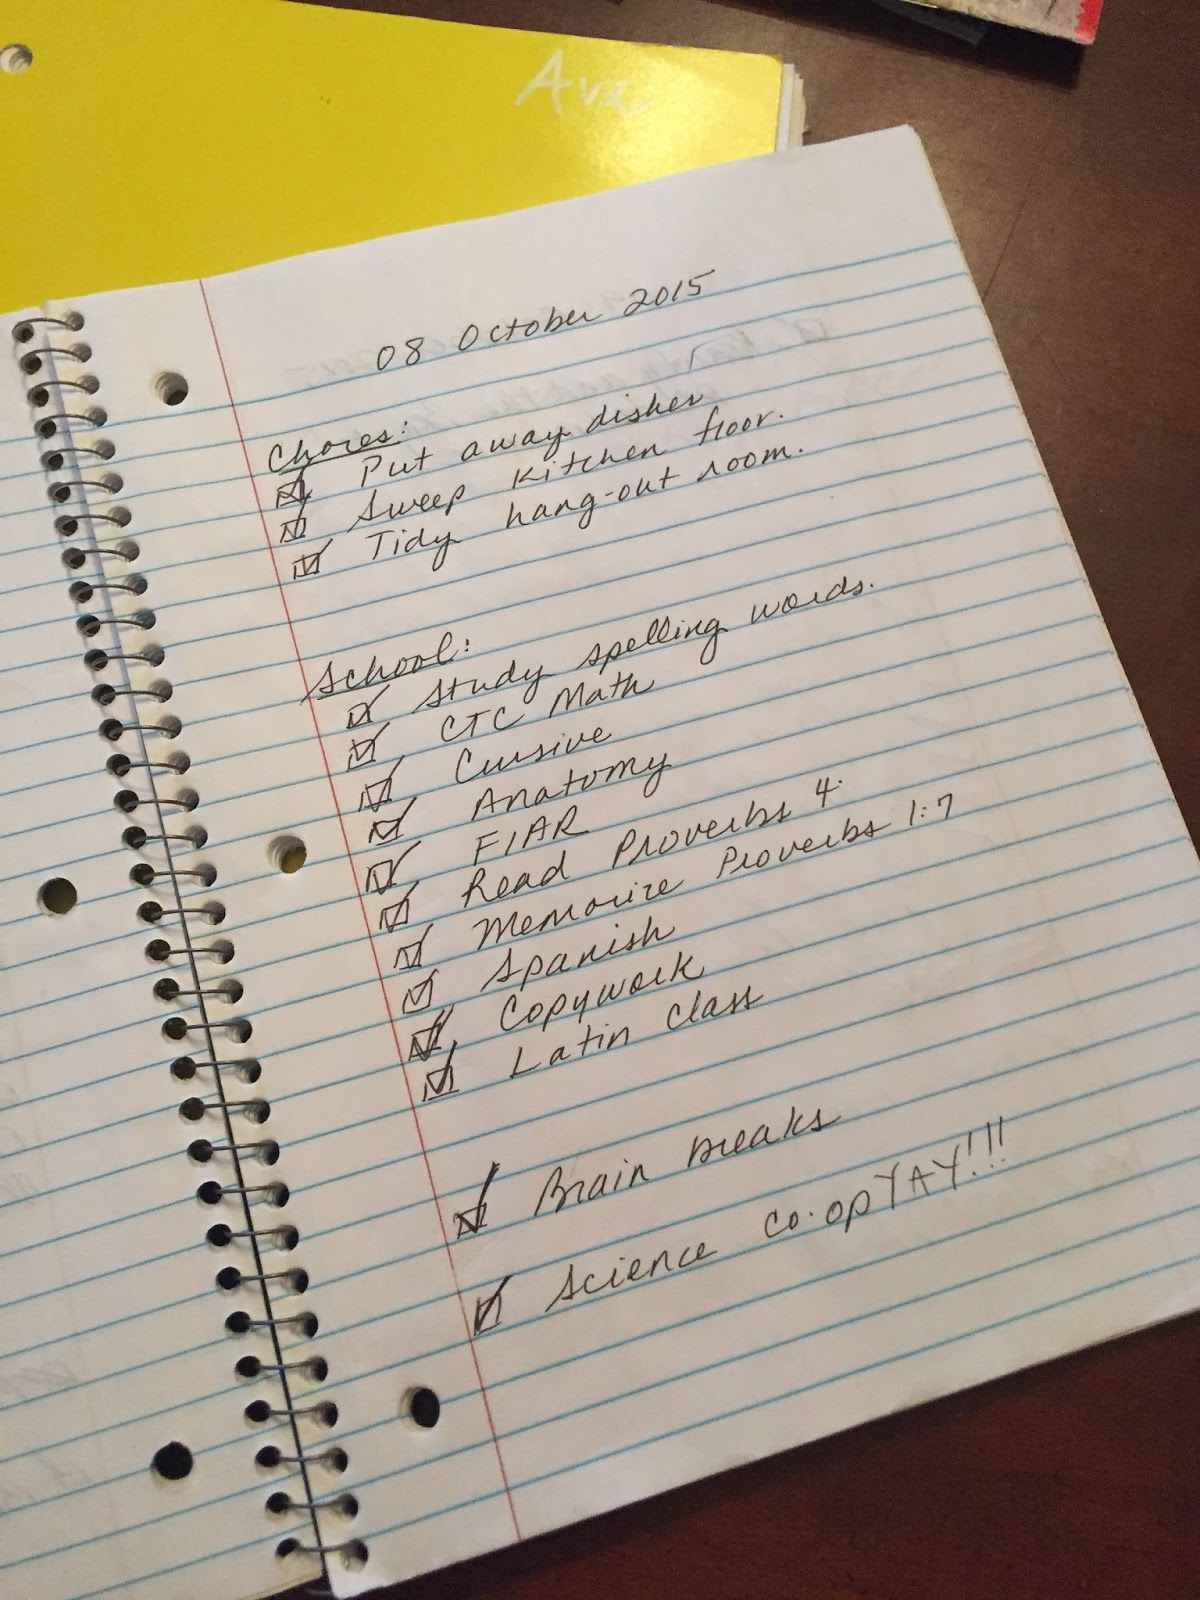 Ava
08 October 2015
Chores:
Put away dishes
Sweep kitchen floor.
Tidy hang-out room.
School:
Study spelling words.
CTC Math
Cursive
Anatomy
FIAR
Read Proverbs 4.
Memorize Proverbs 1:7
Spanish
Copywork
Latin class
Brain breaks
Science co-op YAY!!!